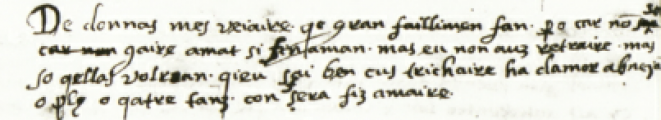 De donnas mes veiaire. qe gran faillimen fan. p o car nō
car non gaire amat si fin aman. mas eu non auz retraire. mas
so qellas volrian. qieu sai ben cus trichaire ha damor
o plus o qatre tans. con sera fiz amaire.